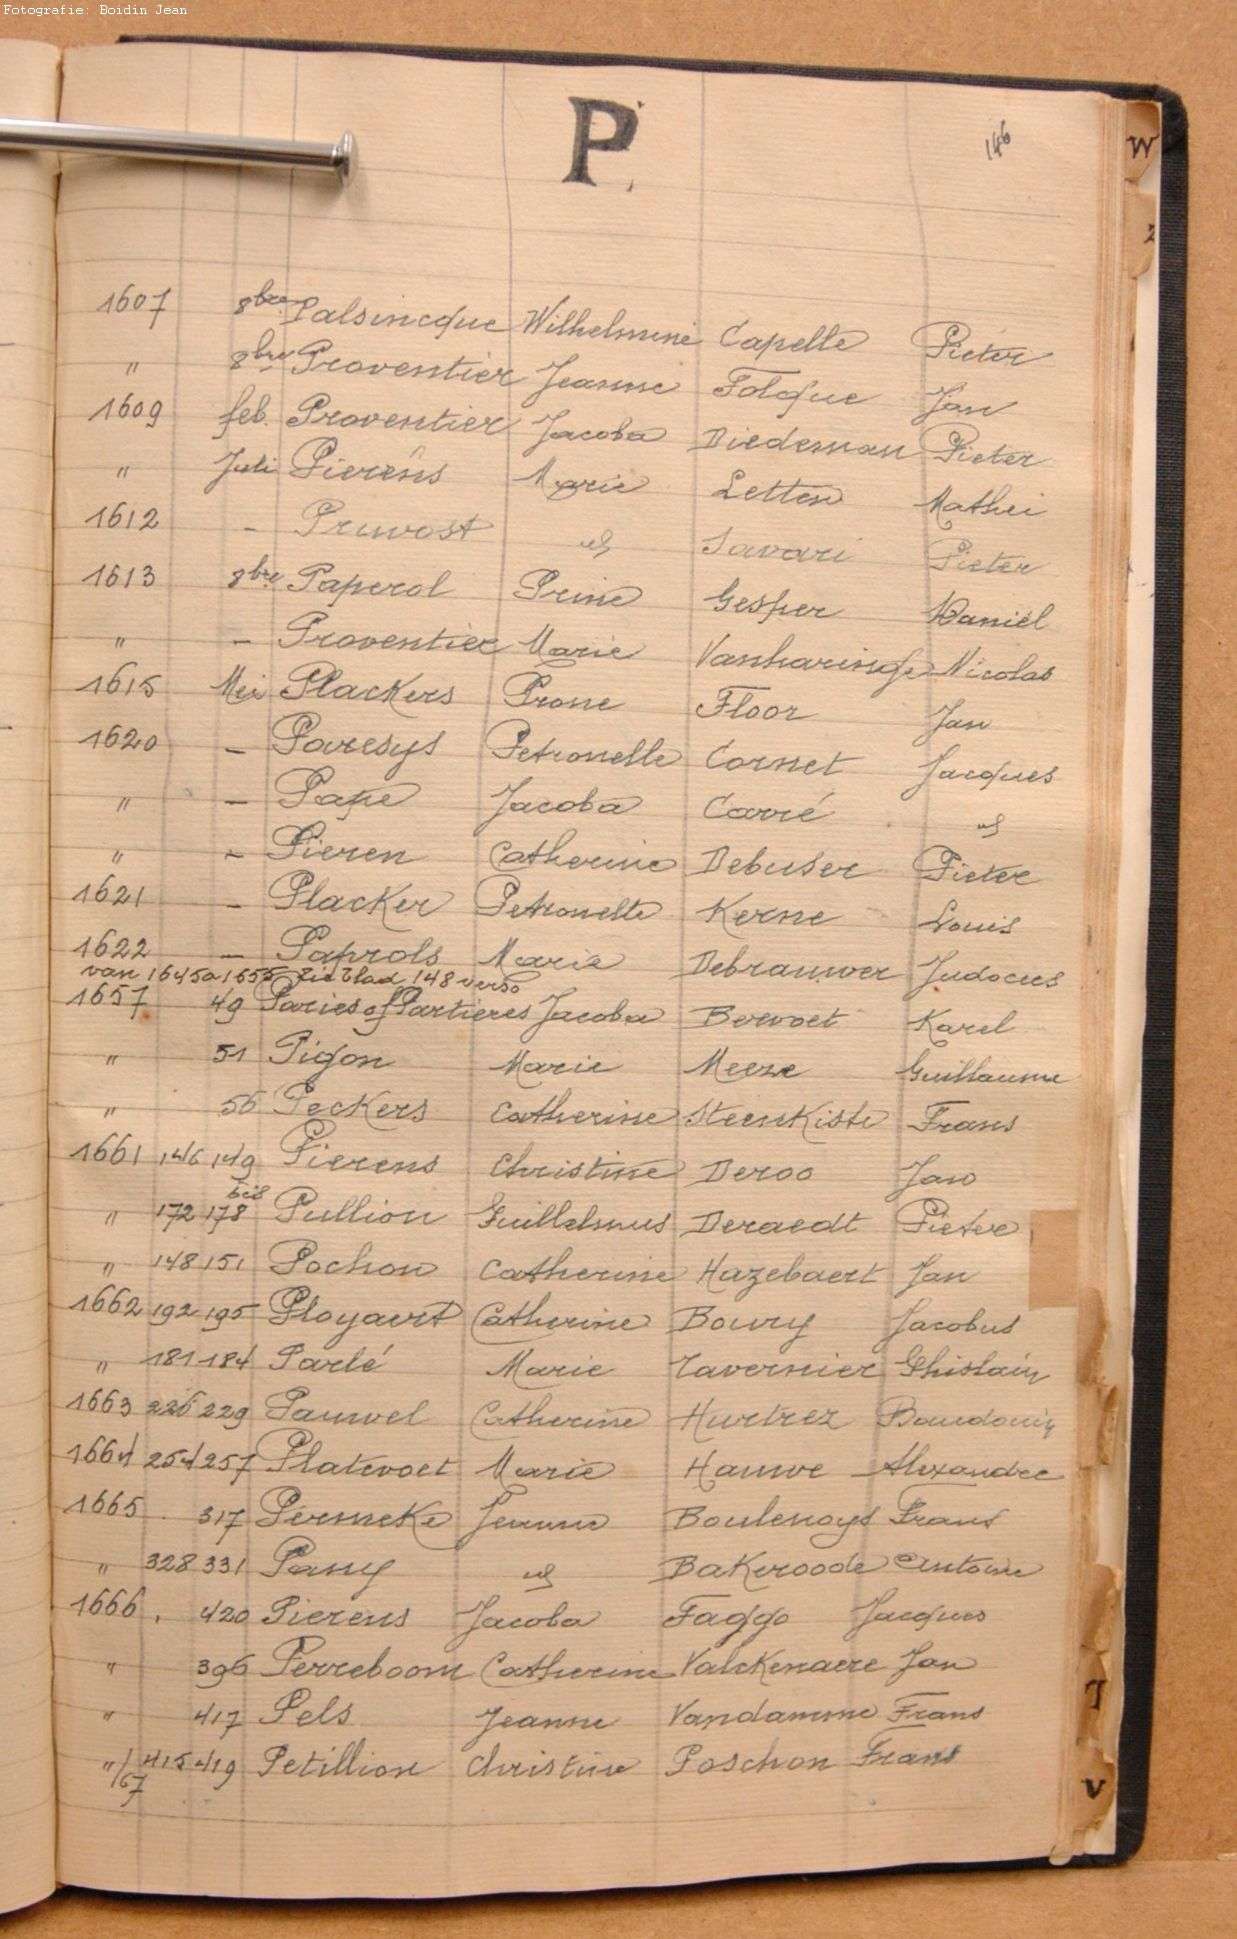 Fotografie: Boidin Jean
P.
146
W
1607 8bre Palsincque Wilhelmine Capelle Pieter
" 8bre Proventier Jeanne Folque Jan
1609 feb. Proventier Jacoba Diedeman Pieter
" Juli Pierens Marie Letten Mathei
1612 - Pruvost " Savari Pieter
1613 8bre Paperol Prine Gesper Daniël
" - Proventier Marie Vanharinge Nicolas
1615 Mei Plackers Prone Floor Jan
1620 - Paresys Petronelle Cornet Jacques
" - Pape Jacoba Carré "
" - Pieren Catherine Debuser Pieter
1621 - Placker Petronelle Kerne Louis
1622 - Paprols Marie Debrauwer Judocus
van 1645 a 1655 Zie blad 148 verso
1657 49 Paries of Partieres Jacoba Bervoet Karel
" 51 Pigon Marie Meeze Guillaume
" 56 Peckers Catherine Steenkiste Frans
1661 146 149 Pierens Christine Deroo Jan
" 172 178 bis Pullion Guillelmus Deraedt Pieter
" 148 151 Pochon Catherine Hazebaert Jan
1662 192 195 Ployaert Catherine Boury Jacobus
" 181 184 Parlé Marie Tavernier Ghislain
1663 226 229 Pauwel Catherine Hurtrez Baudouin
1664 254 257 Platevoet Marie Hauwe Alexander
1665 317 Permeke Jeanne Boulenoys Frans
" 328 331 Pany " Bakeroode Antoine
1666 . 420 Pierens Jacoba Faggo Jacques
" 396 Perreboom Catherine Valckenaere Jan
" 417 Pels Jeanne Vandamme Frans
"/67 415 419 Petillion Christine Poschon Frans
V